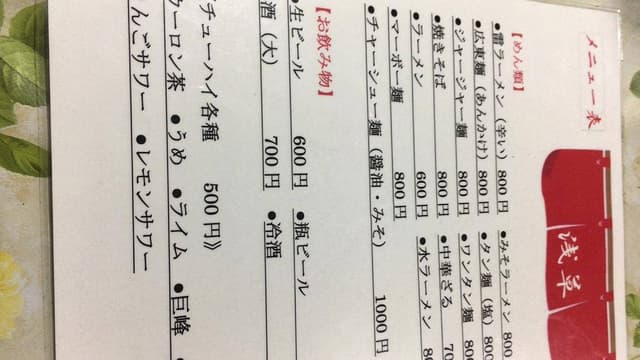 メニュー表
浅草
【めん類】
●雷ラーメン（辛い）800円 ●みそラーメン 800
●広東麺（あんかけ）800円 ●タン麺（塩）80
●ジャージャー麺 800円 ●ワンタン麺 80
●焼きそば 800円 ●中華ざる 70
●ラーメン 600円 ●水ラーメン 80
●マーボー麺 800円
●チャーシュー麺（醤油・みそ） 1000円
【お飲み物】
●生ビール 600円 ●瓶ビール
酒（大） 700円 ●冷酒
チューハイ各種 500円》
ウーロン茶 ●うめ ●ライム ●巨峰
んごサワー ●レモンサワー